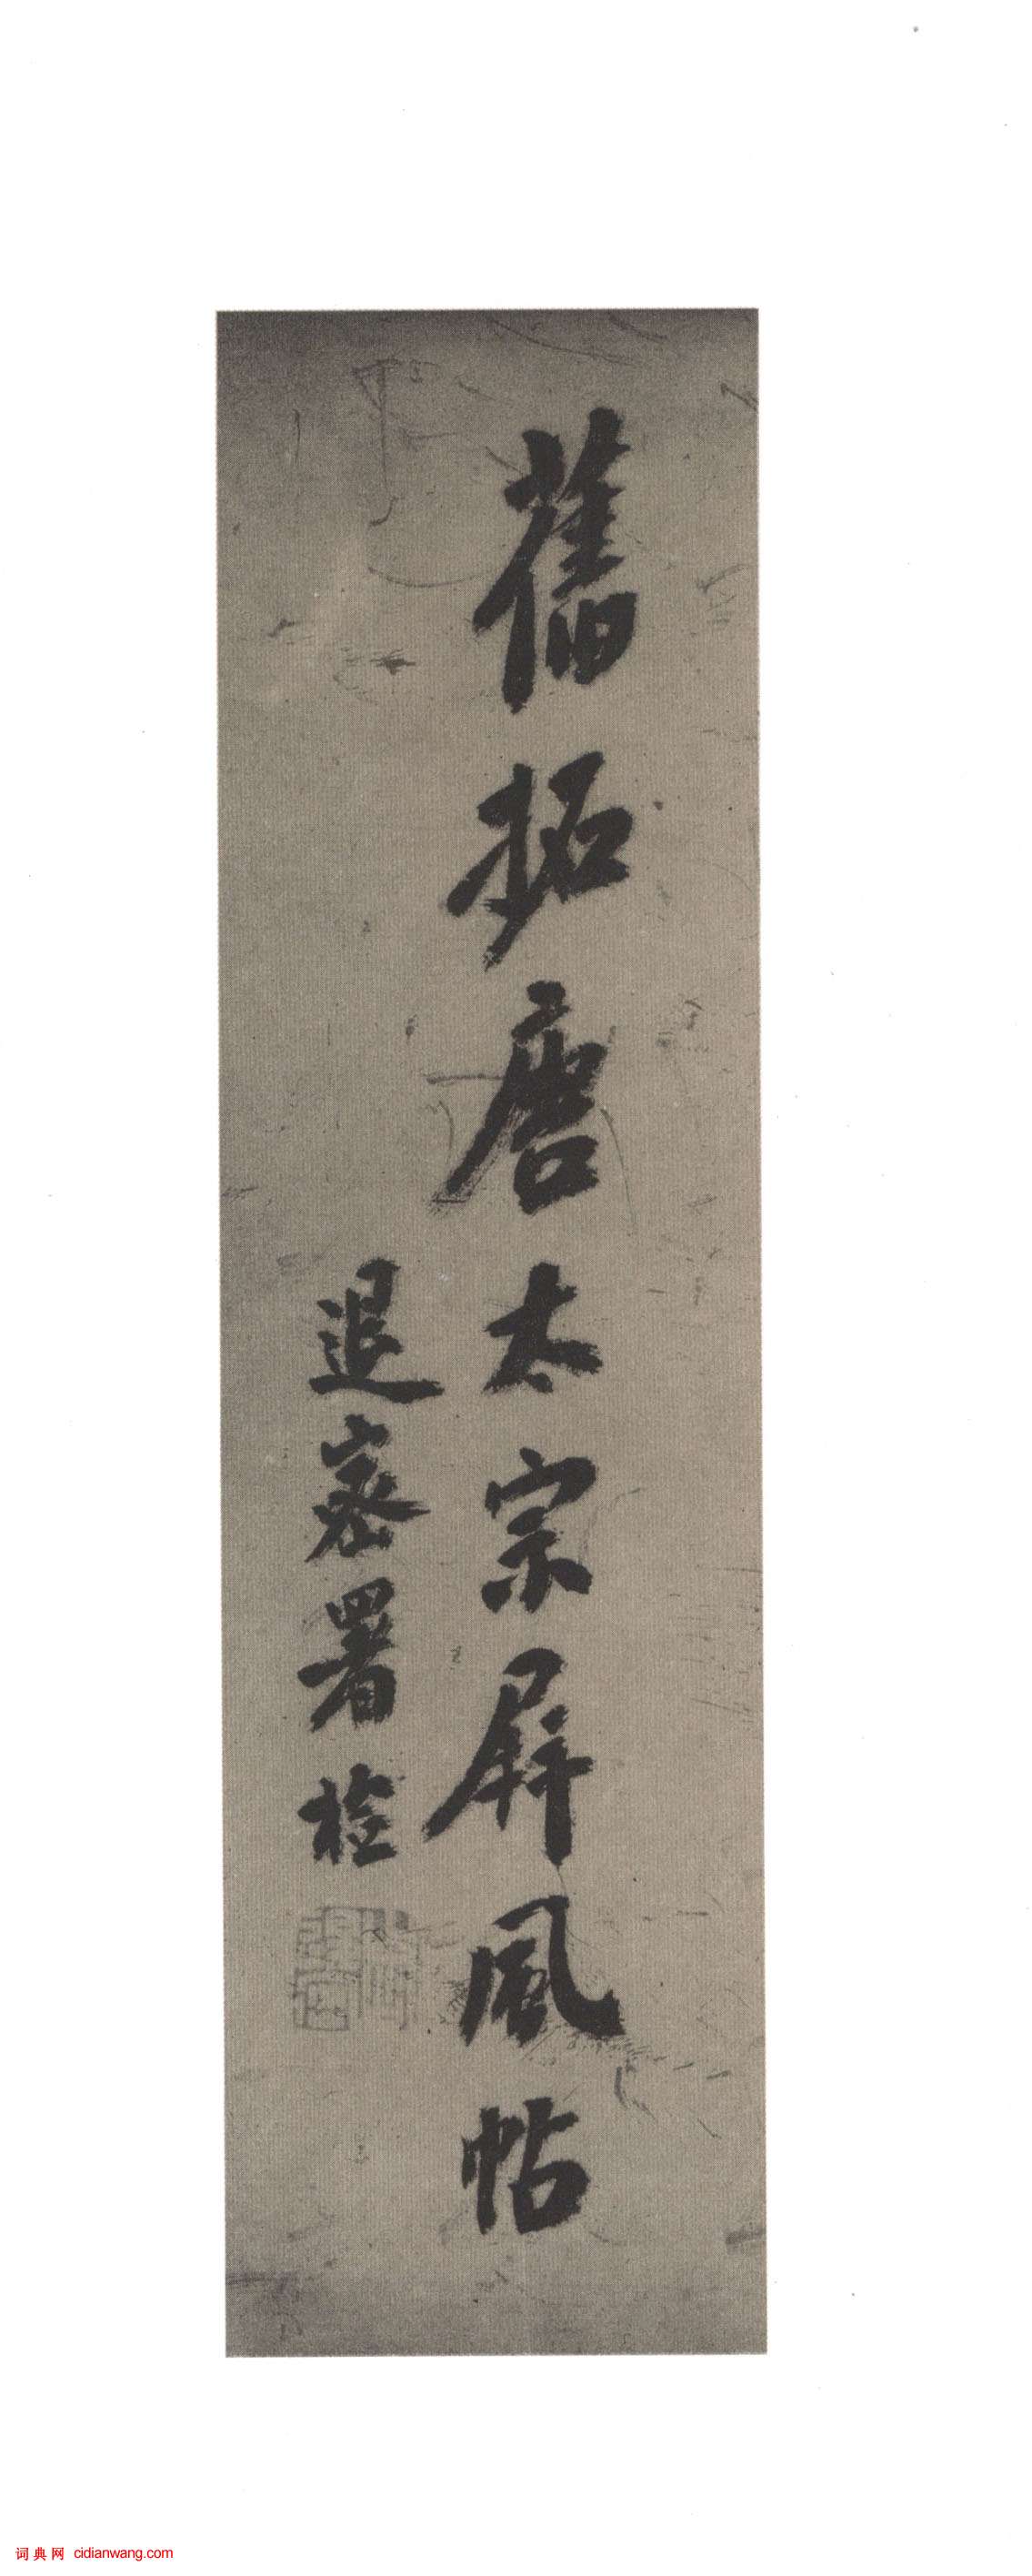 舊拓唐太宗屏風帖
退密署檢
词典网 cidianwang.com